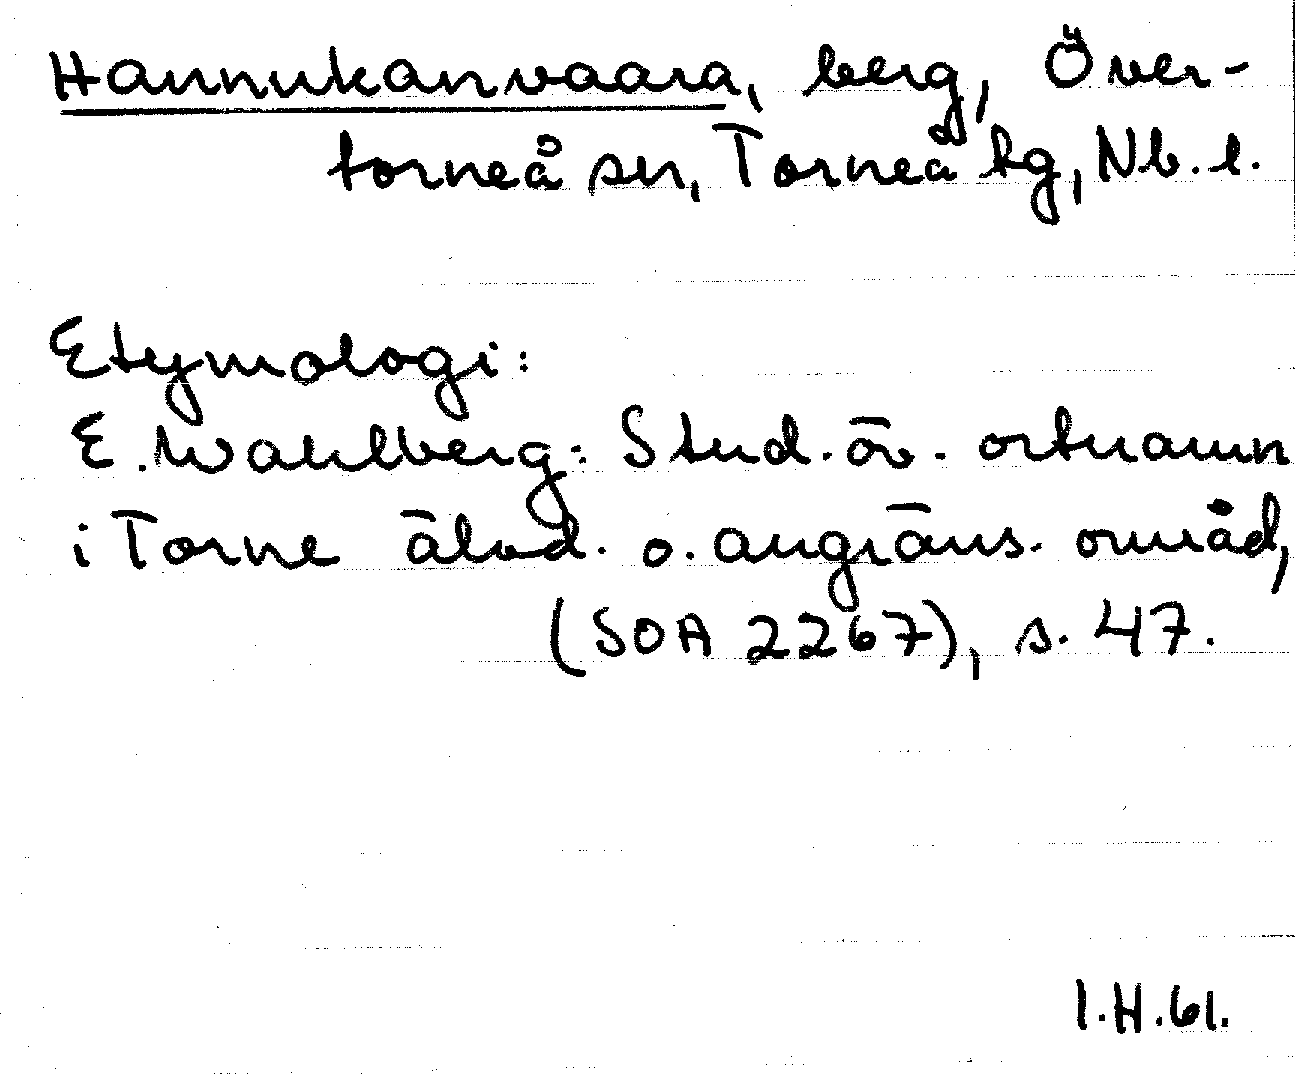 Hannukanvaara, berg, Över-
torneå sn, Torneå tg, Nb. l.
Etymologi:
E. Wahlberg: Stud. öv. ortnamn
i Torne älvd. o. angräns. områd,
(SOA 2267), s. 47.
I.H.61.